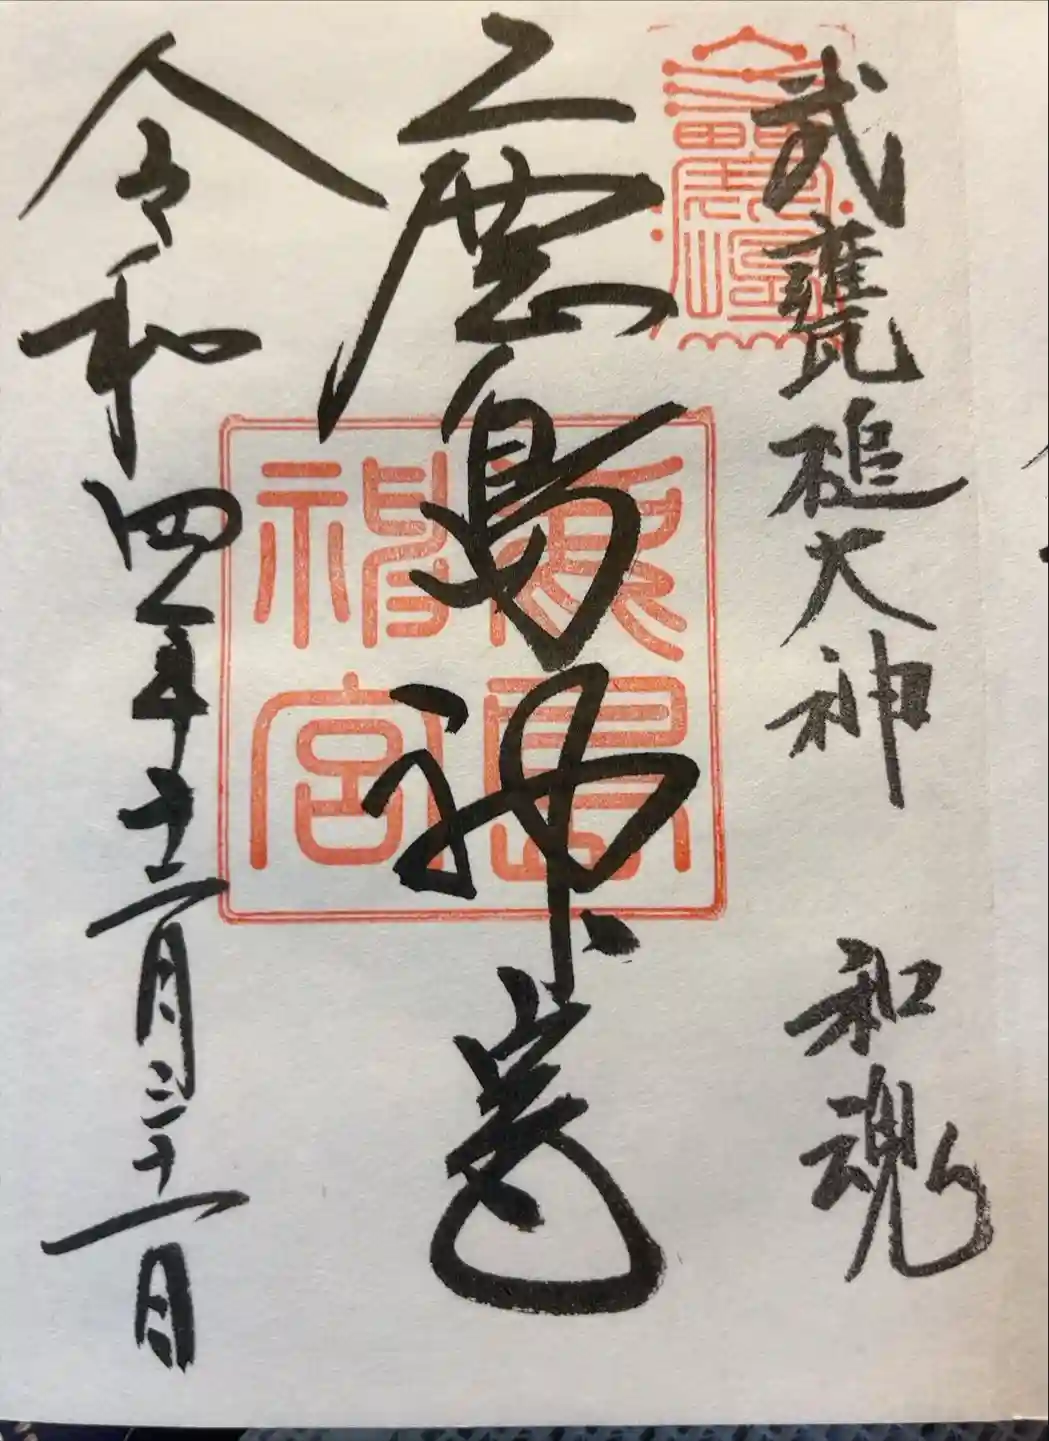 武甕槌大神 和魂
鹿島神宮
鹿島
神宮
令和四年十二月三十一日